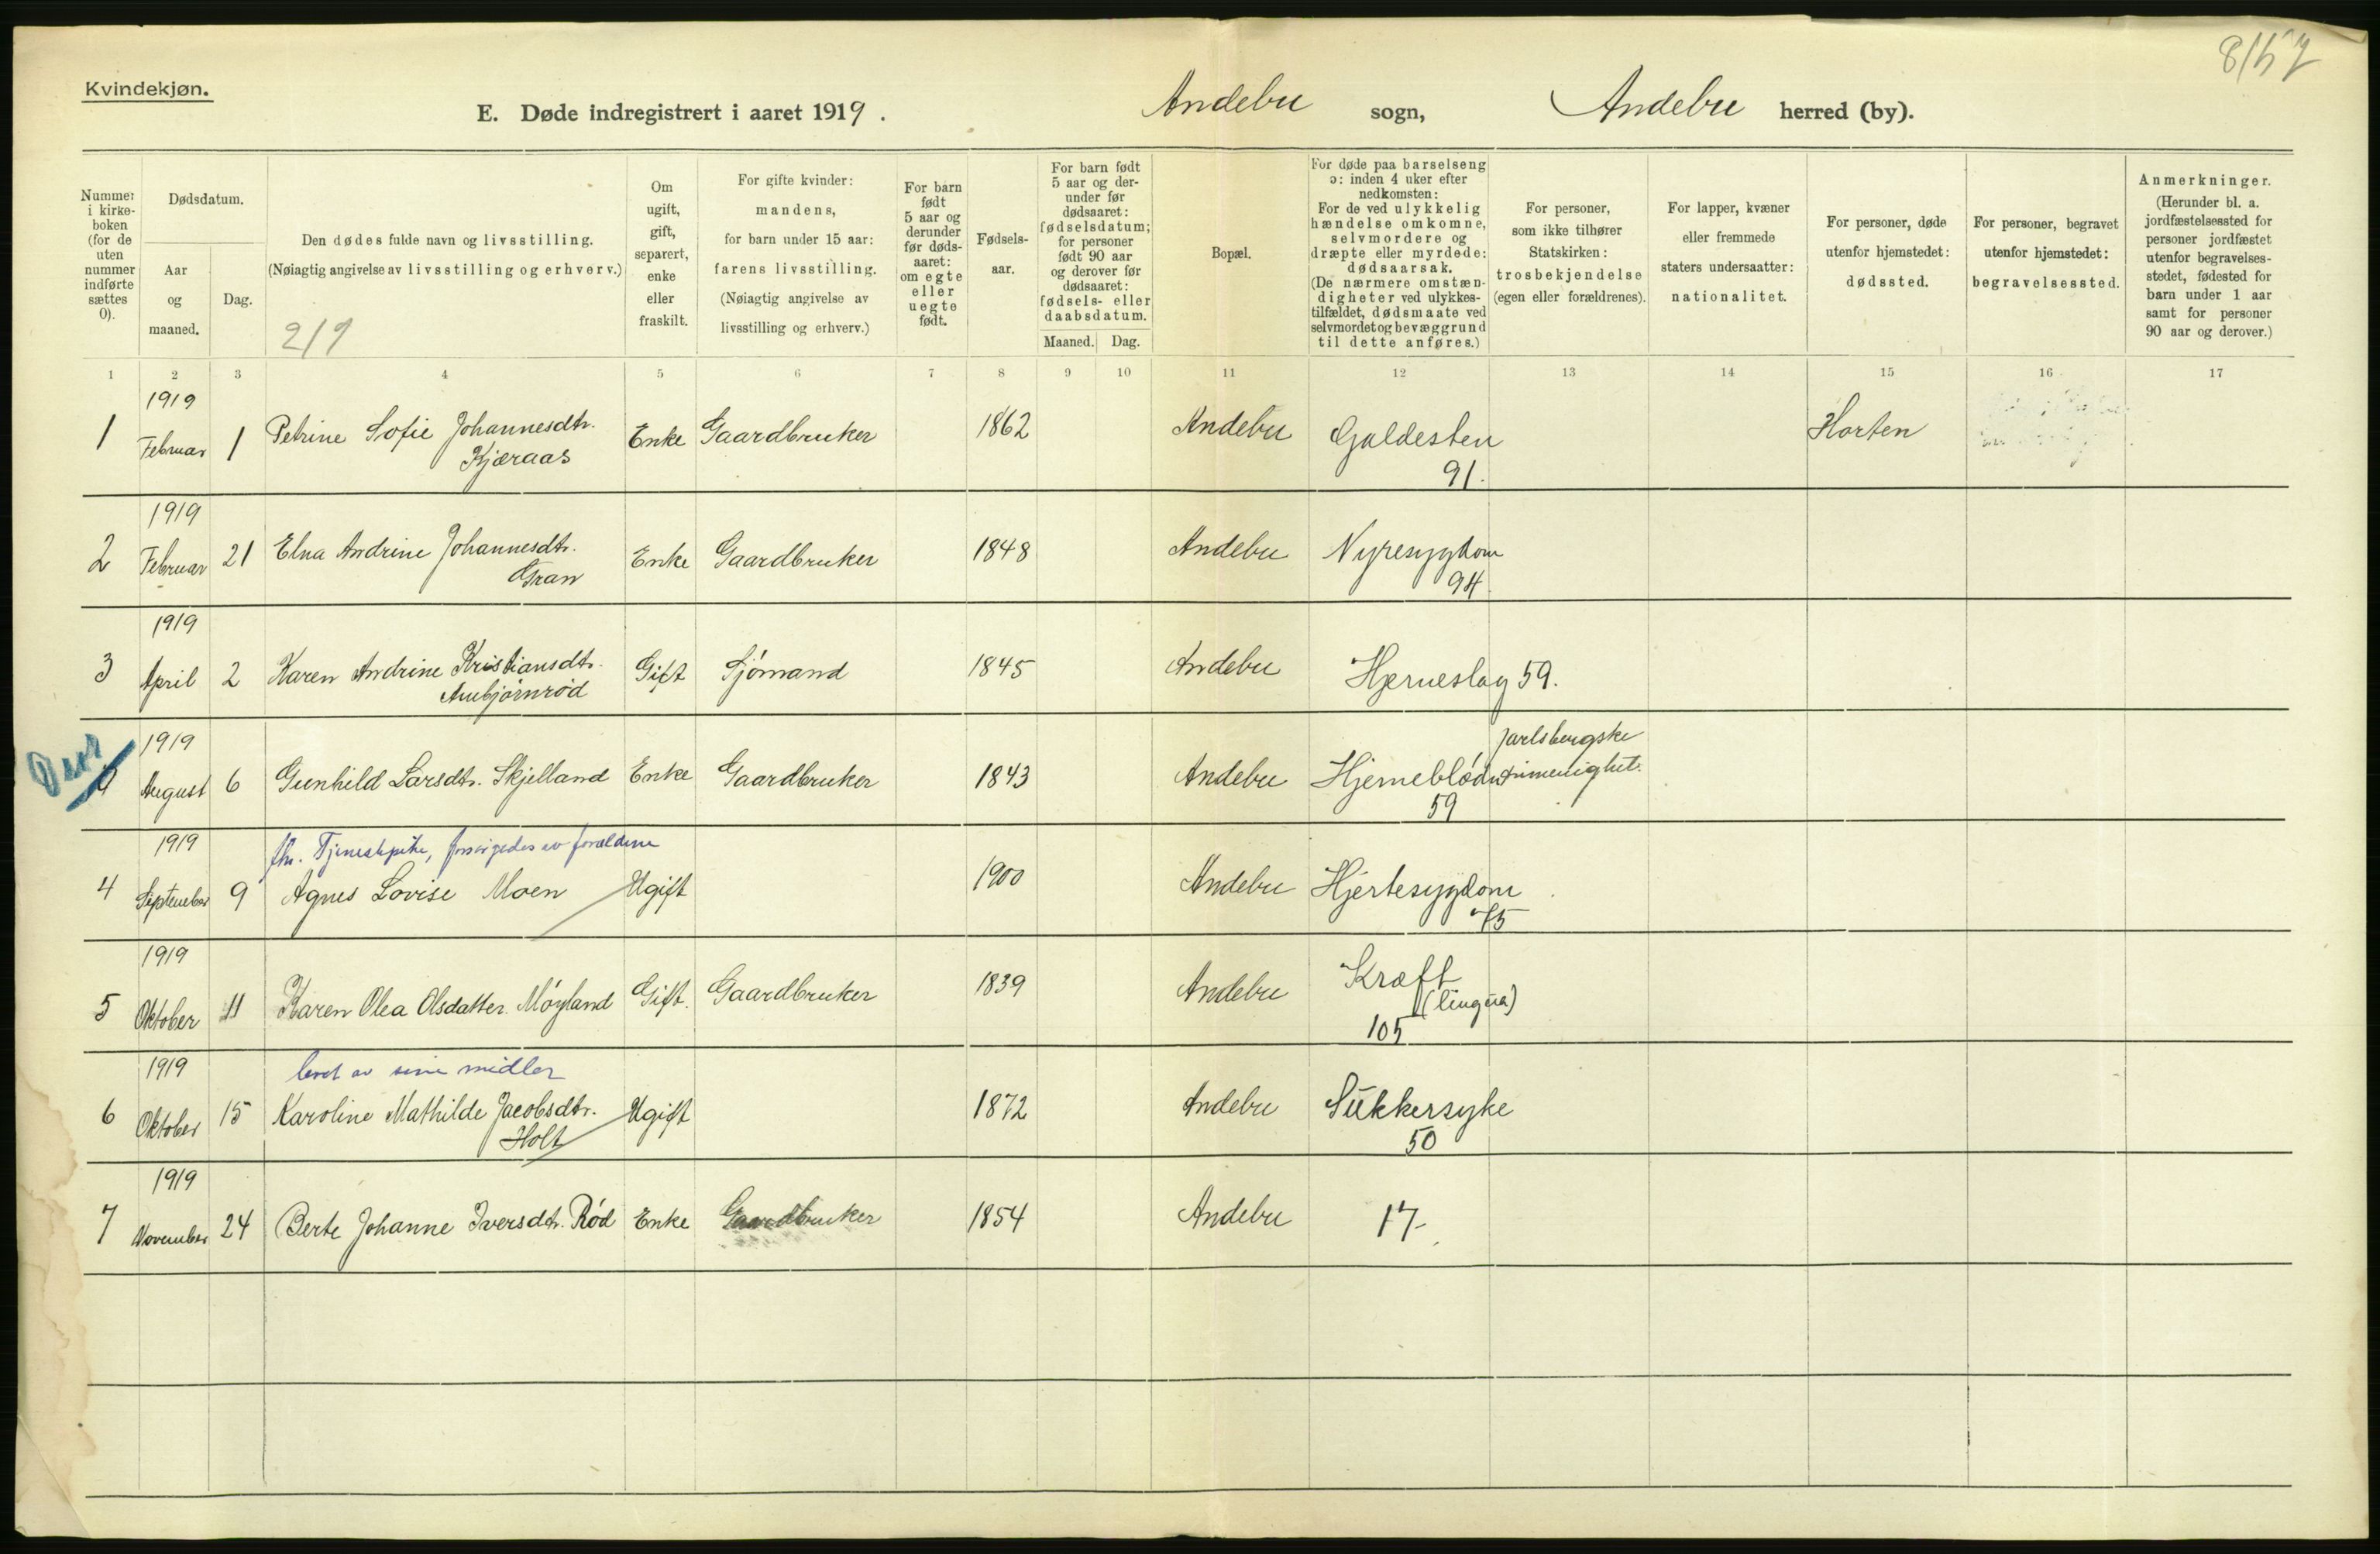 8/57
Kvindekjøn.
E. Døde indregistrert i aaret 1919. Andebu sogn, Andebu herred (by).
Nummer i kirke-boken (for de uten nummer indførte sættes 0).
Dødsdatum.
Aar og maaned.
Dag.
Den dødes fulde navn og livsstilling.
(Nøiagtig angivelse av livsstilling og erhverv.)
2/9
Om ugift, gift, separert, enke eller fraskilt.
For gifte kvinder:
mandens,
for barn under 15 aar:
farens livsstilling.
(Nøiagtig angivelse av
livsstilling og erhverv.)
For barn født 5 aar og derunder før døds-aaret: om egte eller uegte født.
Fødsels-aar.
For barn født 5 aar og der-under før dødsaaret: fødselsdatum; for personer født 90 aar og derover før dødsaaret: fødsels- eller daabsdatum.
Maaned. Dag.
Bopæl.
For døde paa barselseng
ɔ: inden 4 uker efter
nedkomsten:
For de ved ulykkelig
hændelse omkomne,
selvmordere og
dræpte eller myrdede:
dødsaarsak.
(De nærmere omstæn-
digheter ved ulykkes-
tilfældet, dødsmaate ved
selvmordet og bevæggrund
til dette anføres.)
For personer,
som ikke tilhører
Statskirken:
trosbekjendelse
(egen eller forældrenes).
For lapper, kvæner
eller fremmede
staters undersaatter:
nationalitet.
For personer, døde
utenfor hjemstedet:
dødssted.
For personer, begravet
utenfor hjemstedet:
begravelsessted.
Anmerkninger.
(Herunder bl. a.
jordfæstelsessted for
personer jordfæstet
utenfor begravelses-
stedet, fødested for
barn under 1 aar
samt for personer
90 aar og derover.)
1 2 3 4 5 6 7 8 9 10 11 12 13 14 15 16 17
1919
1 Februar 1 Petrine Sofie Johannesdtr. Enke Gaardbruker 1862 Andebu Galdesten Horten
Kjæraas 91.
1919
2 Februar 21 Elna Andrine Johannesdtr. Enke Gaardbruker 1848 Andebu Nyresygdom
Gran 94.
1919
3 April 2 Karen Andrine Kristiansdtr. Gift Sjømand 1845 Andebu Hjerneslag 59.
Aubjørnrød
1919 Jarlsbergske
0 August 6 Gunhild Larsdtr. Skjelland Enke Gaardbruker 1843 Andebu Hjerneblødn. frimenighet.
59
1919 fhv. Tjenestepike, forsørgedes av forældrene
4 September 9 Agnes Lovise Moen Ugift 1900 Andebu Hjertesygdom
75
1919
5 Oktober 11 Karen Olea Olsdatter Møyland Gift. Gaardbruker 1839 Andebu Kræft
(lingua)
105
1919 levet av sine midler
6 Oktober 15 Karoline Mathilde Jacobsdtr. Ugift 1872 Andebu Sukkersyke
Holt 50
1919
7 November 24 Berte Johanne Iversdtr. Rød Enke Gaardbruker 1854 Andebu 17.